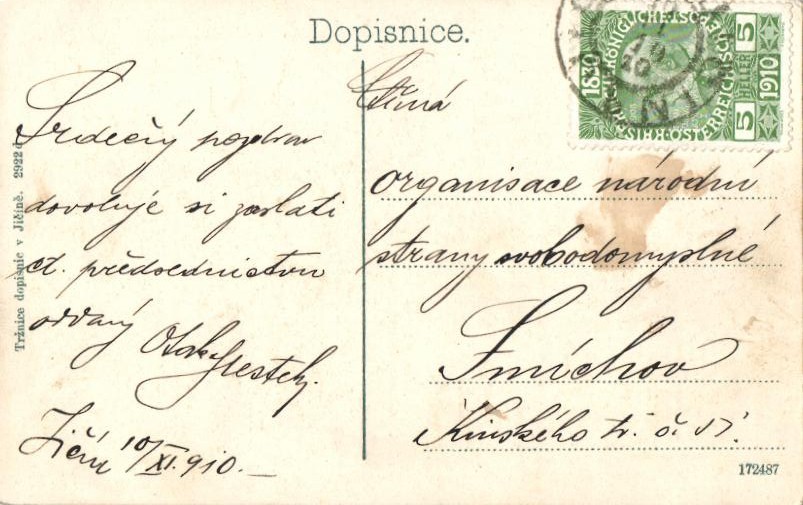 Dopisnice.
Srdečný pozdrav
dovoluje si zaslati
ct. předsednictvu
oddaný Otak.
Jičín 10/XI. 910.
Tržnice dopisnic v Jičíně. 2922
Ctěná
organisace národní
strany svobodomyslné
Smíchov
Kinského tř. č.
172487
1830
1910
5 HELLER 5